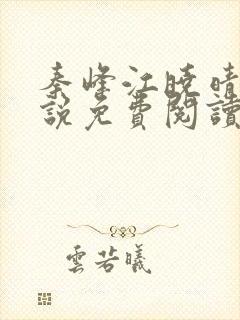 秦峰江曉晴
說免費閱讀
雲若曦